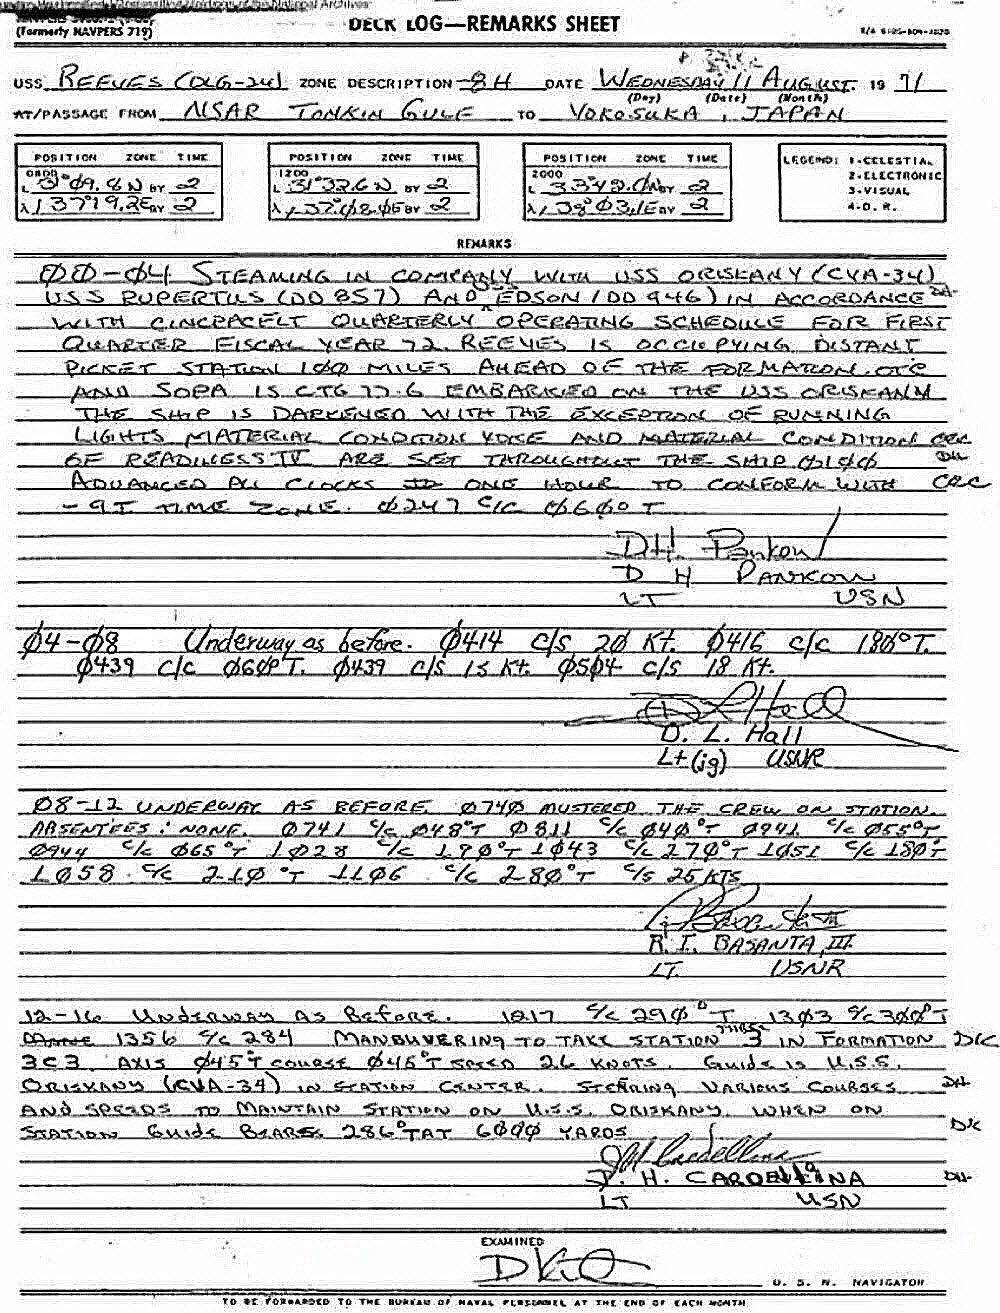 DECK LOG—REMARKS SHEET
(Formerly NAVPERS 719)
USS REEVES (DLG-24) ZONE DESCRIPTION -8H DATE WEDNESDAY 11 AUGUST 19 71
(Day) (Date) (Month)
AT/PASSAGE FROM NSAR TONKIN GULF TO YOKOSUKA, JAPAN
POSITION ZONE TIME POSITION ZONE TIME POSITION ZONE TIME LEGEND: 1-CELESTIAL
0800 1200 2000 2-ELECTRONIC
L 31°09.8N BY 2 L 31°32.6N BY 2 L 33°42.0N BY 2 3-VISUAL
λ 137°19.2E BY 2 λ 137°08.0E BY 2 λ 138°03.1E BY 2 4-D.R.
REMARKS
00-04 STEAMING IN COMPANY WITH USS ORISKANY (CVA-34)
USS RUPERTUS (DD 857) AND EDSON (DD 946) IN ACCORDANCE DH
WITH CINCPACFLT QUARTERLY OPERATING SCHEDULE FOR FIRST
QUARTER FISCAL YEAR 72. REEVES IS OCCUPYING DISTANT
PICKET STATION 100 MILES AHEAD OF THE FORMATION. OTC
AND SOPA IS CTG 77.6 EMBARKED ON THE USS ORISKANY
THE SHIP IS DARKENED WITH THE EXCEPTION OF RUNNING
LIGHTS MATERIAL CONDITION YOKE AND MATERIAL CONDITION
OF READINESS IV ARE SET THROUGHOUT THE SHIP 0100 DH
ADVANCED ALL CLOCKS ONE HOUR TO CONFORM WITH
-9I TIME ZONE. 0247 C/C 060° T
DH. Pankow
D H PANKOW
LT USN
04-08 Underway as before. 0414 c/s 20 Kt. 0416 c/c 180°T.
0439 c/c 060°T. 0439 c/s 15 Kt. 0504 c/s 18 Kt.
D L Hall
D. L. Hall
Lt(jg) USNR
08-12 UNDERWAY AS BEFORE. 0740 MUSTERED THE CREW ON STATION.
ABSENTEES: NONE. 0741 c/c 048°T 0811 c/c 040°T 0941 c/c 055°T
0944 c/c 065°T 1028 c/c 190°T 1043 c/c 270°T 1051 c/c 180°T
1058 c/c 210°T 1106 c/c 280°T c/s 25 KTS
R. I. BASANTA, III
LT. USNR
12-16 UNDERWAY AS BEFORE. 1217 c/c 290°T 1303 c/c 300°T
1356 c/c 284 MANEUVERING TO TAKE STATION THREE 3 IN FORMATION DK
3C3 AXIS 045°T COURSE 045°T SPEED 26 KNOTS. GUIDE IS U.S.S.
ORISKANY (CVA-34) IN STATION CENTER. STEERING VARIOUS COURSES DH
AND SPEEDS TO MAINTAIN STATION ON U.S.S. ORISKANY. WHEN ON
STATION GUIDE BEARS 286°T AT 6000 YARDS DK
J. H. CARDELLINA DH
LT USN
EXAMINED
U. S. N. NAVIGATOR
TO BE FORWARDED TO THE BUREAU OF NAVAL PERSONNEL AT THE END OF EACH MONTH